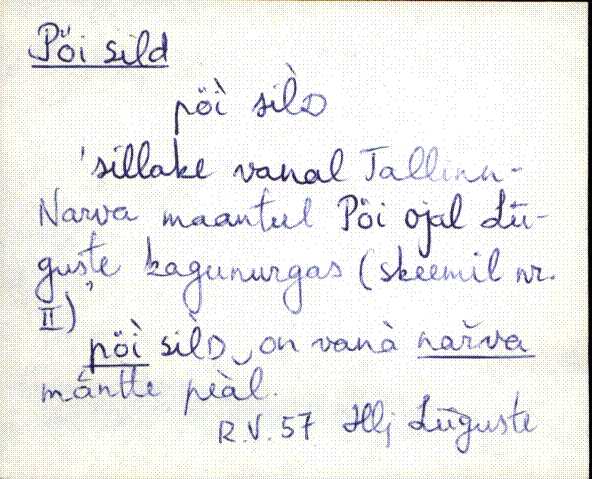 Pöi sild
pöì sìlD
'sillake vanal Tallinn-
Narva maanteel Pöi ojal Lü-
guste kagunurgas (skeemil nr.
II)'
pöì sìlD on vanà nařva
mántte peàl.
R.V. 57 Hlj Lüguste